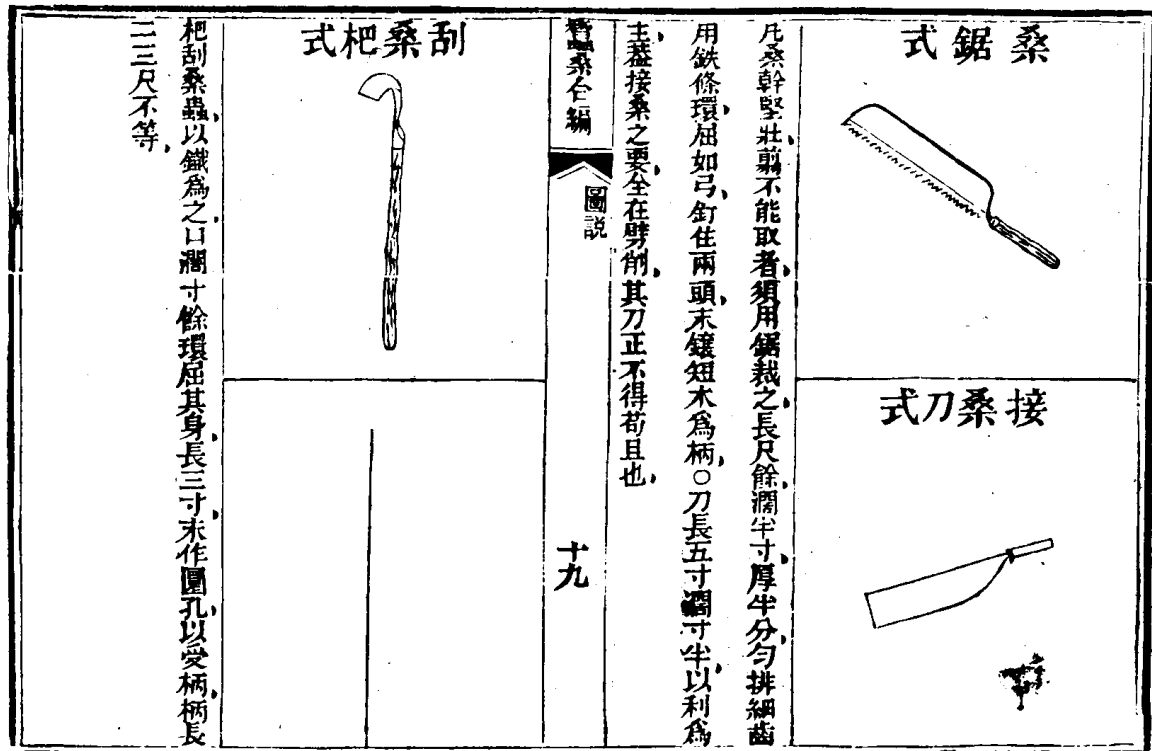 桑鋸式
接桑刀式
凡桑幹堅壯翦不能取者須用鋸裁之長尺餘濶半寸厚半分勻排細齒
用鉄條環屈如弓釘住兩頭末鑲短木為柄○刀長五寸濶寸半以利為
主葢接桑之要全在劈削其刀正不得苟且也
蠶桑合編
圖説
十九
刮桑杷式
杷刮桑蟲以鐵爲之口濶寸餘環屈其身長三寸末作圓孔以受柄柄長
二三尺不等